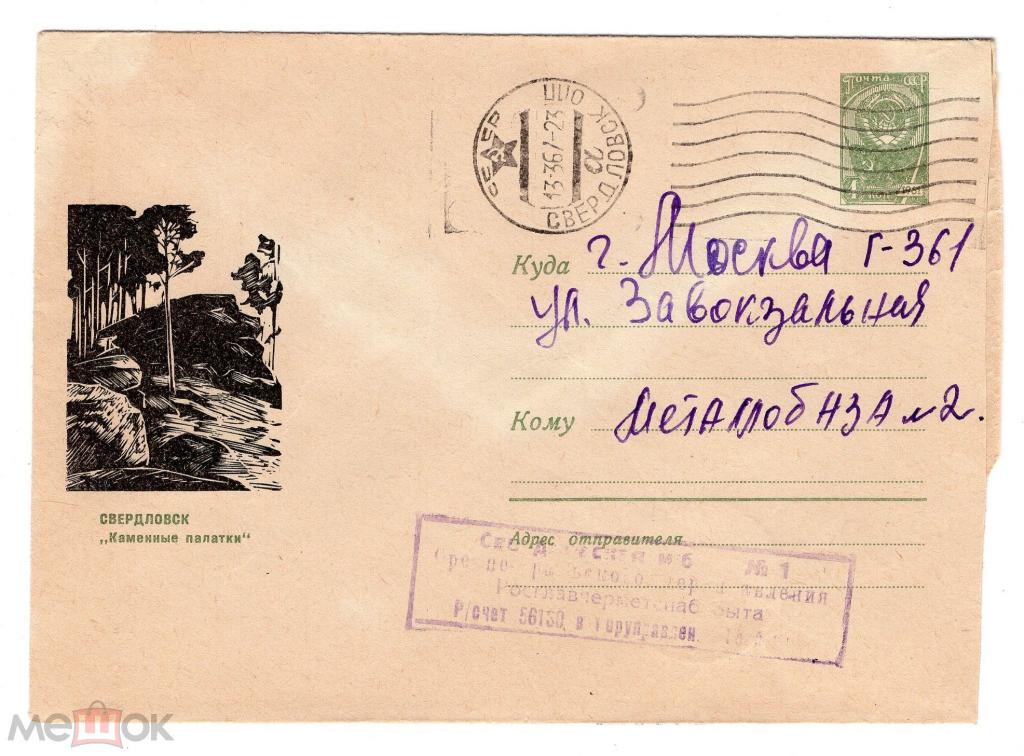 Почта СССР
СССР
ППО
13-367-23
СВЕРДЛОВСК
20
4
КОП
1961
Куда г. Москва Г-361
ул. Завокзальная
Кому Металлобаза №2.
СВЕРДЛОВСК
„Каменные палатки“
Адрес отправителя
№ 1
Росглавчерметснабсбыта
Р/счет 56130 в Горуправлен.
мешок